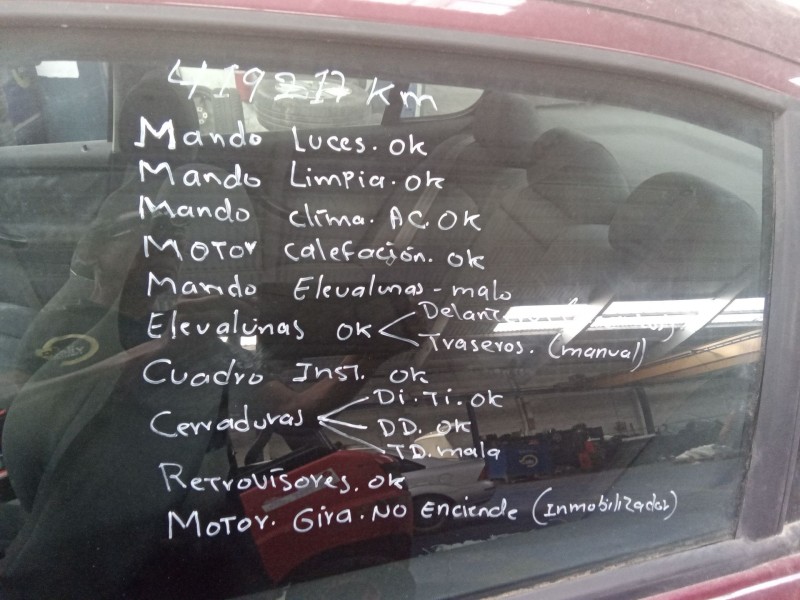 419217 km
Mando Luces. ok
Mando Limpia. ok
Mando clima. AC. OK
MOTOR calefación. ok
Mando Elevalunas - malo
Elevalunas OK Delanteros
Traseros. (manual)
Cuadro Inst. ok
Cerraduras Di. Ti. ok
DD. OK
TD. mala
Retrovisores. ok
MOTOR. Gira. NO Enciende (Inmobilizador)